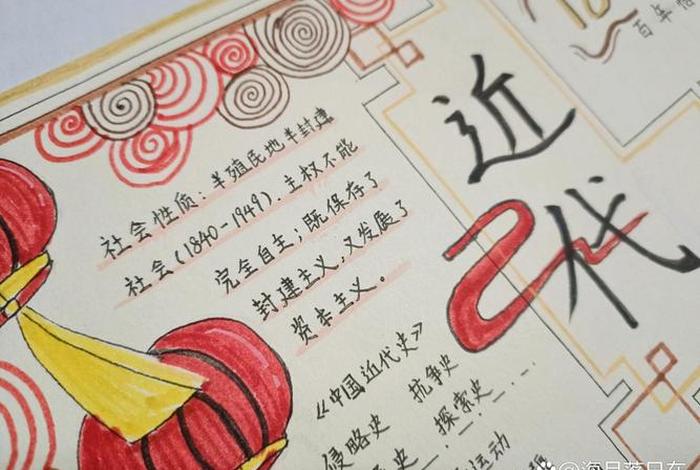 近代
百年
社会性质：半殖民地半封建
社会(1840-1949).主权不能
完全自主；既保存了
封建主义，又发展了
资本主义。
《中国近代史》
侵略史 抗争史
史 探索史
运动